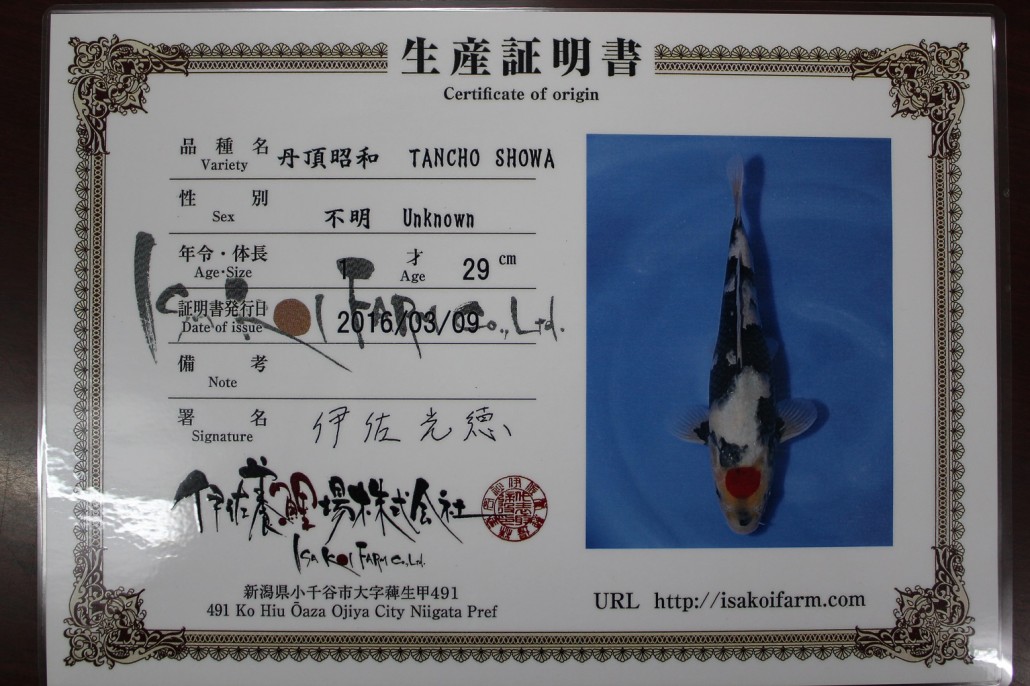 生産証明書
Certificate of origin
品種名 丹頂昭和 TANCHO SHOWA
Variety
性別 不明 Unknown
Sex
年令・体長 1 才 29 cm
Age・Size Age
証明書発行日 2016/03/09
Date of issue
ISA KOI FARM Co., Ltd.
備考
Note
署名 伊佐光徳
Signature
伊佐養鯉場株式会社
ISA KOI FARM Co., Ltd.
新潟県小千谷市大字薭生甲491
491 Ko Hiu Ōaza Ojiya City Niigata Pref
URL http://isakoifarm.com